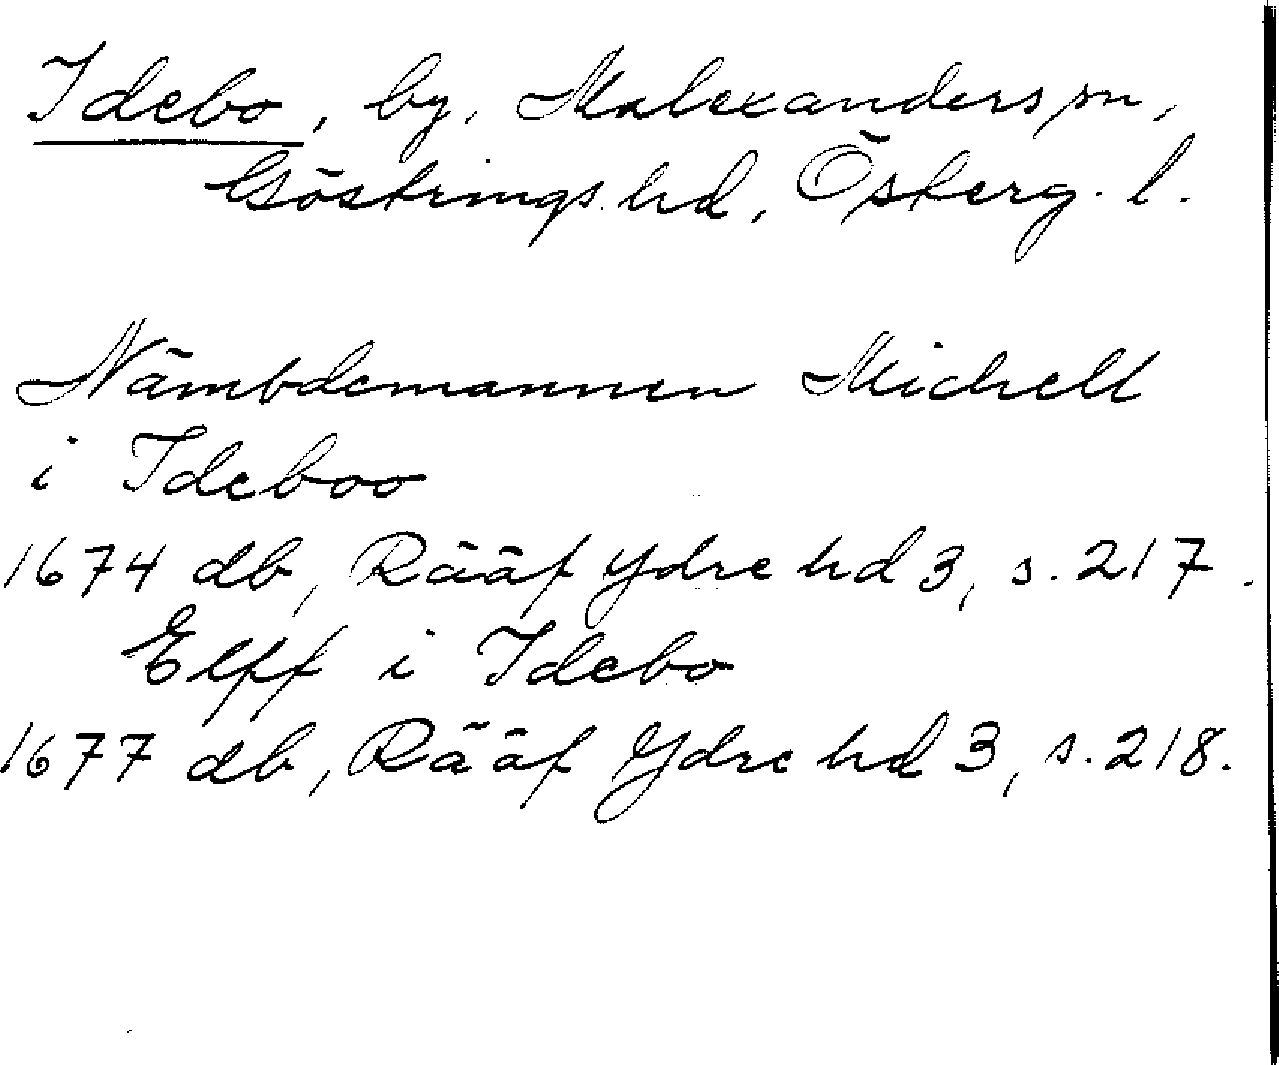 Idebo, by, Malexanders sn,
Göstrings hd, Österg. l.
Nämbdemannen Michell
i Ideboo
1674 db, Rääf Ydre hd 3, s. 217.
Elff i Idebo
1677 db, Rääf Ydre hd 3, s. 218.